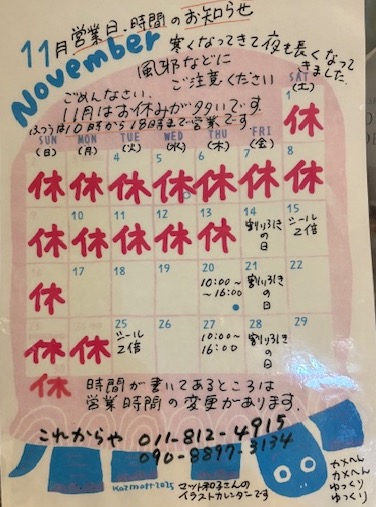 11月営業日、時間のお知らせ
November
寒くなってきて夜も長くなって
きました。
風邪などに
ご注意ください
ごめんなさい、
11月はお休みが多いです
ふつうは10時から18時まで営業です。
SUN MON TUE WED THU FRI SAT
(日) (月) (火) (水) (木) (金) (土)
1
休
4 5 6 7 8
休 休 休 休 休 休 休
9 10 11 12 13 14 15
休 休 休 休 休 割り引きの日 シール2倍
17 18 19 20 21 22
休 10:00~~16:00 割り引きの日
25 26 27 28 29
休 休 シール2倍 10:00~16:00 割り引きの日
休
時間が書いてあるところは
営業時間の変更があります。
これからや 011-812-4915
090-8897-3134
Kazmatt2025
マット和子さんの
イラストカレンダーです
カメへん
カメへん
ゆっくり
ゆっくり